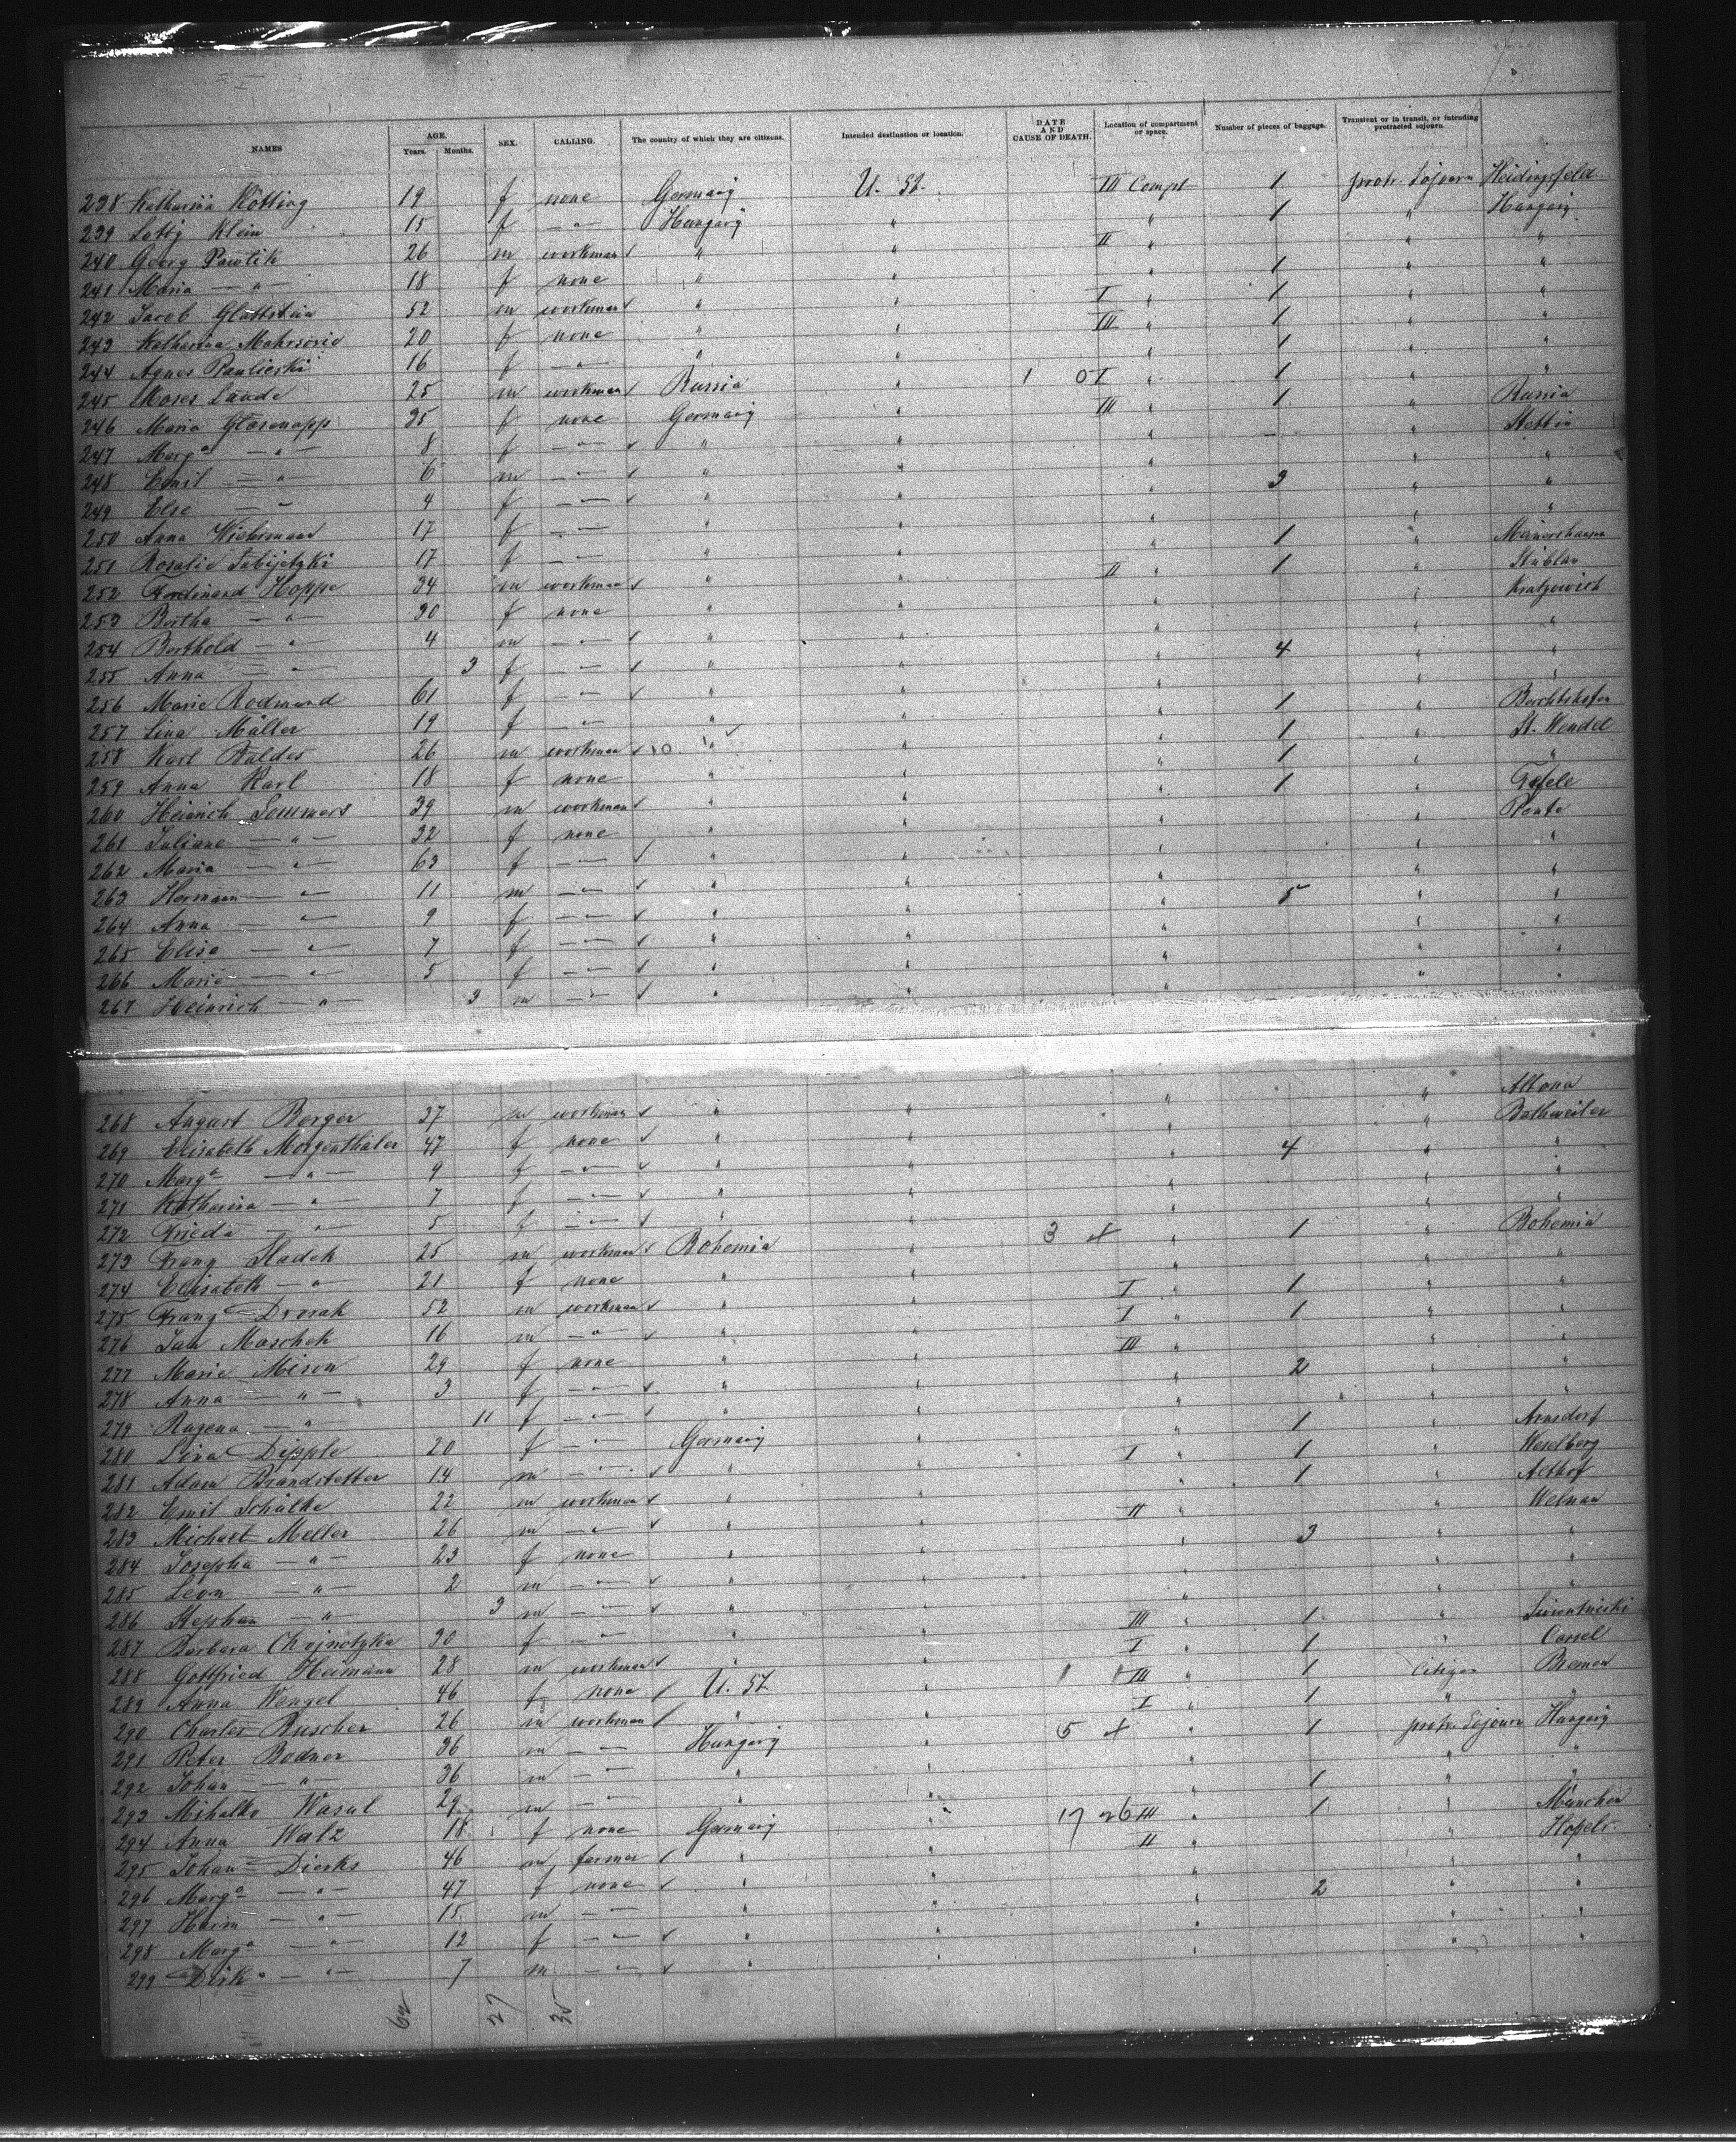 NAMES AGE. Years. Months. SEX. CALLING. The country of which they are citizens. Intended destination or location. DATE AND CAUSE OF DEATH. Location of compartment or space. Number of pieces of baggage. Transient or in transit, or intending protracted sojourn.
238 Katharina Kötting 19 f none Germany U. St. III Compt 1 protr. Sojourn Heidingsfeld
239 Lotty Klein 15 f — " — Hungary " " 1 " Hungary
240 Georg Pawlik 26 m workman " " II " " "
241 Maria — " — 18 f none " " " 1 " "
242 Jacob Glattstein 52 m workman " " I " 1 " "
243 Katharina 20 f none " " III " 1 " "
244 Agnes 16 f — " — " " " 1 " "
245 Moses 25 m workman Russia " 1 0 I " 1 " Russia
246 Maria Glasenapp 35 f none Germany " III " 1 " Stettin
247 Marga — " — 8 f — " — " " " — " "
248 Emil — " — 6 m — " — " " " 3 " "
249 Else — " — 4 f — " — " " " " "
250 Anna 17 f — " — " " " 1 "
251 Rosalie 17 f — " — " " " 1 " Stüblau
252 Ferdinand Hoppe 34 m workman " " II " "
253 Bertha — " — 30 f none " " " " "
254 Berthold — " — 4 m — " — " " " 4 " "
255 Anna — " — 3 f — " — " " " " "
256 Marie 61 f — " — " " " 1 "
257 Lina Müller 19 f — " — " " " 1 " St. Wendel
258 Karl Baldes 26 m workman 10 " " " 1 " "
259 Anna Karl 18 f none " " " 1 "
260 Heinrich Sommers 39 m workman " " " "
261 Juliane — " — 32 f none " " " " "
262 Maria — " — 63 f — " — " " " " "
263 Hermann — " — 11 m — " — " " " 5 " "
264 Anna — " — 9 f — " — " " " " "
265 Elise — " — 7 f — " — " " " " "
266 Marie — " — 5 f — " — " " " " "
267 Heinrich — " — 3 m — " — " " " " "
268 August Berger 37 m workman " " " " Altona
269 Elisabeth Morgenthaler 47 f none " " " " Bathweiler
270 Marga — " — 9 f — " — " " " 4 " "
271 Katharina — " — 7 f — " — " " " " "
272 Frieda — " — 5 f — " — " " " " "
273 Franz Sladek 25 m workman Bohemia " 3 " 1 " Bohemia
274 Elisabeth — " — 21 f none " " " " "
275 Franz Dvorak 52 m workman " " I " 1 " "
276 Jan Maschek 16 m — " — " " I " 1 " "
277 Marie Mison 29 f none " " III " " "
278 Anna — " — 3 f — " — " " " 2 " "
279 — " — 11 f — " — " " " " "
280 Lina Dipple 20 f — " — Germany " " 1 " Arnsdorf
281 Adam Brandstetter 14 m — " — " " I " 1 " Weselberg
282 Emil Schulke 22 m workman " " " 1 " Althof
283 Michael Meller 26 m — " — " " II " " Welnau
284 Josepha — " — 23 f none " " " 3 " "
285 Leon — " — 2 m — " — " " " " "
286 Stephan — " — 3 m — " — " " " " "
287 Barbara 30 f — " — " " III " 1 "
288 Gottfried Heimann 28 m workman " " I " 1 " Cassel
289 Anna Wengel 46 f none U. St. " III " 1 Citizen Bremen
290 Charles Buscher 26 m workman " " I " 1 " "
291 Peter Bodner 36 m — " — Hungary " 5 " 1 protr. Sojourn Hungary
292 Johan — " — 36 m — " — " " " " "
293 Mihalko Wasul 29 m — " — " " " 1 " "
294 Anna Walz 18 f none Germany " 17 26 III " 1 " München
295 Johan Dierks 46 m farmer " " II " "
296 Marga — " — 47 f none " " " " "
297 — " — 15 m — " — " " " 2 " "
298 Marga — " — 12 f — " — " " " " "
299 Dirk — " — 7 m — " — " " " " "
62 27 35